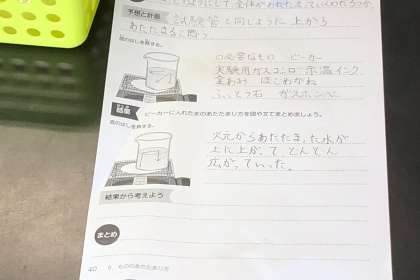 ようにして全体があたたまっていくのだろうか
予想と計画
試験管と同じように上から
あたたまると思う
図のはしを貸する。
○必要なもの ビーカー
実験用ガスコンロ 示温インク
ふっとう石 ガスボンベ
結果
ビーカーに入れた水のあたたまり方を図や文でまとめましょう。
火元からあたたまった水が
上に上がって どんどん
広がっていった。
結果から考えよう
まとめ
40 9. もののあたたまり方